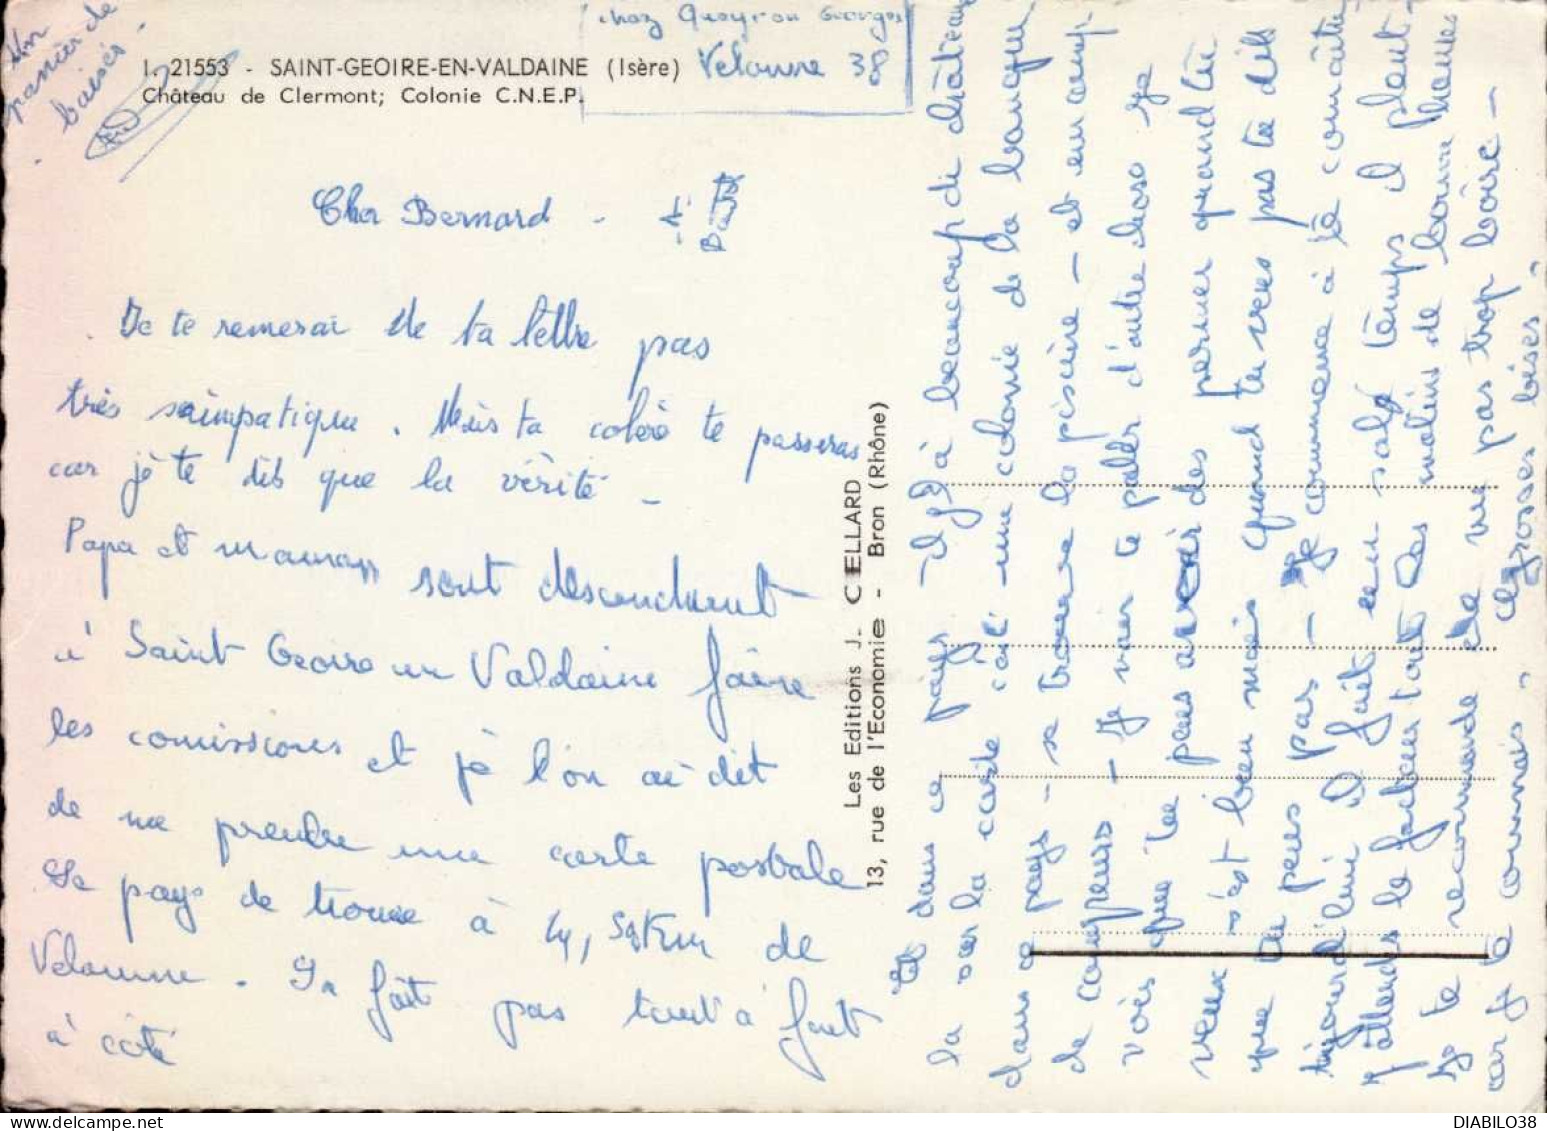 Un
panier de
baisers -
chez Queyron Georges
Velanne 38
I. 21553 - SAINT-GEOIRE-EN-VALDAINE (Isère)
Château de Clermont; Colonie C.N.E.P.
Cher Bernard -
Je te remersai de ta lettre pas
très saimpatique. Mais ta colère te passeras
car je te dis que la vérité -
Papa et maman sont descendurent
à Saint Geoire en Valdaine faire
les comissions et je l'on ai dit
de me prendre une carte postale
Le pays de trouve à 4, 5 Km de
Velanne. Sa fait pas tout à fait
à côté
Les Editions J. CELLARD
13, rue de l'Economie - Bron (Rhône)
Et dans ce pays - il y à beaucoup de château
la sur la carte c'est une colonie de la banque
dans ce pays - se trouve la piscine - et un camp
de campeurs - Je vais te parler d'autre chose Je
vois que tu peus avoir des permer quand tu
veux s'est bien mais quand tu veus pas tu dis
que tu peus pas - Je commence à te connaître
aujourd'hui il fait un sale temps il pleut -
J'attends le facteur tout les matins de bonne heure
Je te recommande de ne pas trop boire -
car je te connais. Grosses bises.
DIABILO38